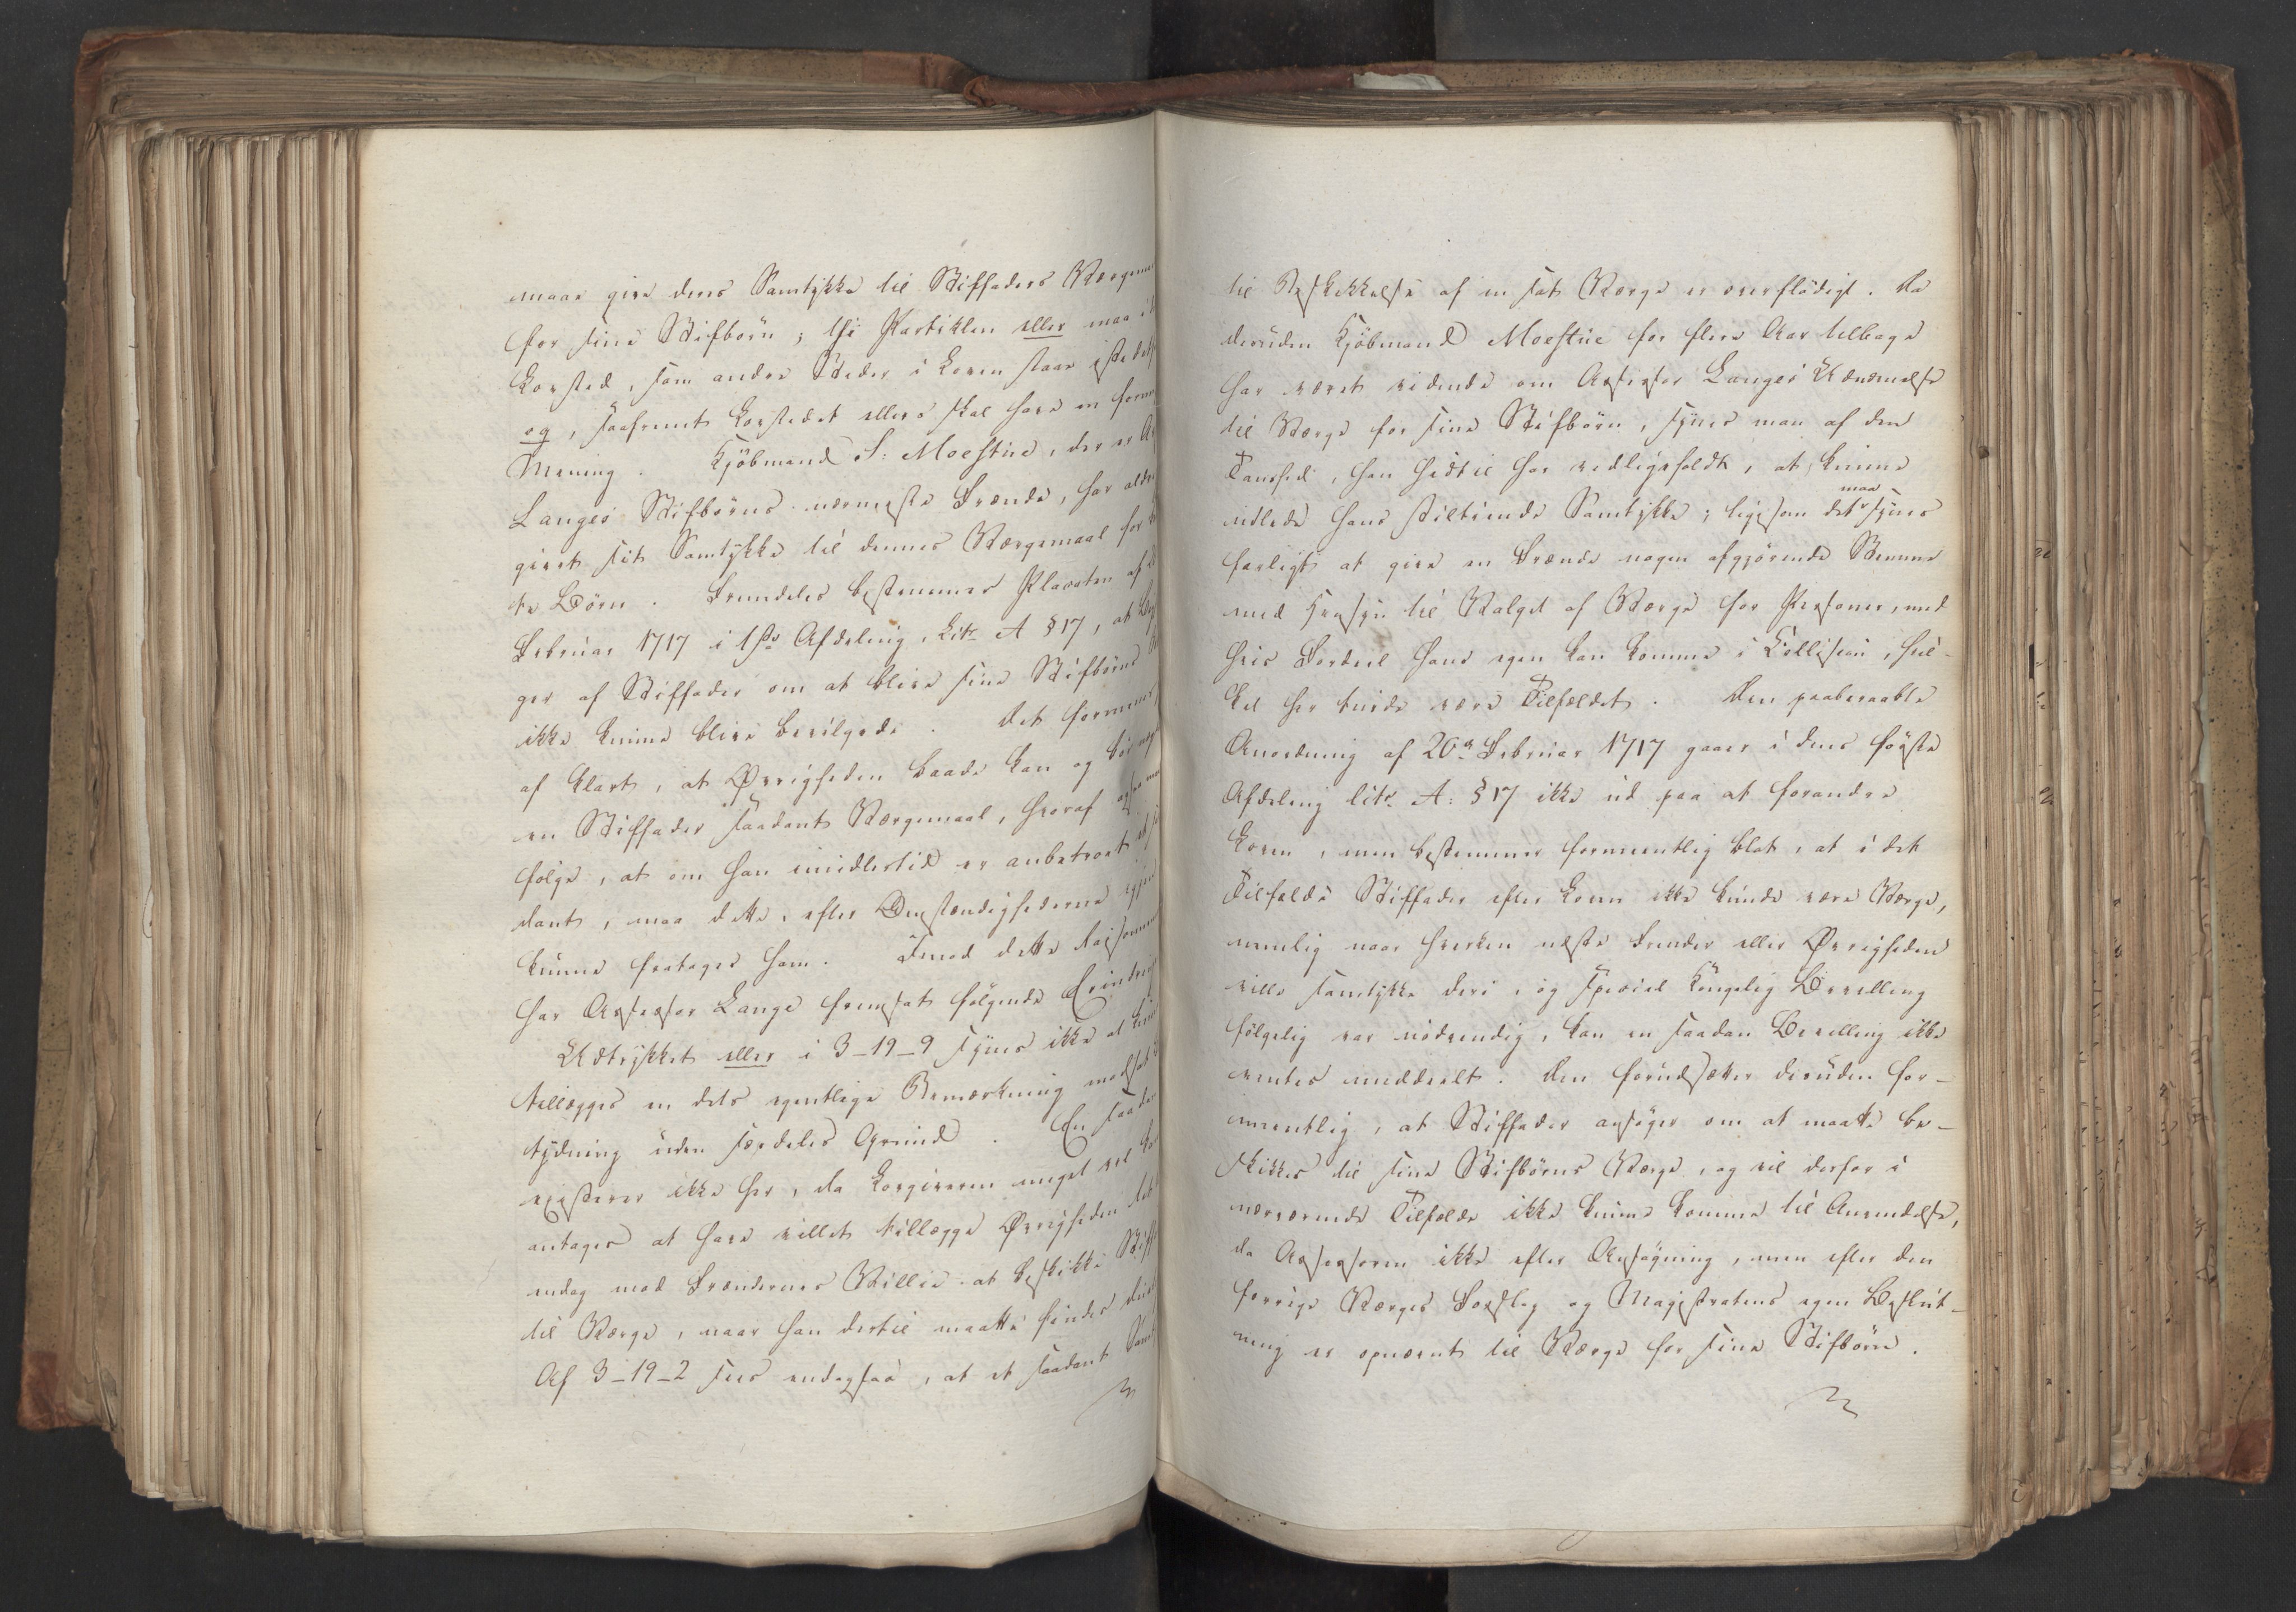 maae give deres Samtykke til Stiffaders Værgema
for sine Stifbørn; thi Partiklen eller maa i d
Lovsted, som andre Steder i Loven staae istedetf
og, saafremt Lovstedet ellers skal have en fornu
Mening. Kjøbmand S: Moestue, der er A
Langes Stifbørns nærmeste Frænde, har aldri
givet sit Samtykke til dennes Værgemaal for
te Børn. Fremdeles bestemmer Placaten af
Februar 1717 i 1ste Afdeling, Litr A § 17, at
ger af Stiffader om at blive sine Stifbørns
ikke kunne blive bevilgede. Det formenes
af klart, at Øvrigheden baade kan og bør
en Stiffader saadant Værgemaal, hvoraf ogsaa maa
følge, at om han imidlertid er anbetroet et
dant, maa dette, efter Omstændighederne igjen
kunne fratages ham. Imod dette Raisonnem
har Assessor Lange fremsat følgende Erindring
Udtrykket eller i 3-19-9 synes ikke at kun
tillægges en dets egentlige Bemærkning modsat
tydning uden særdeles Grund. En saadan
existerer ikke her, da Lovgiveren meget vel kan
antages at have villet tillægge Øvrigheden Ret
endog mod Frændernes Villie at beskikke Stiff
til Værge, naar han dertil maatte findes
Af 3-19-2 sees endogsaa, at et saadant Samt
til Beskikkelse af en sat Værge er overflødigt. Da
desuden Kjøbmand Moestue for flere Aar tilbage
har været vidende om Assessor Langes Udnævnelse
til Værge for sine Stifbørn, synes man af den
Taushed, han hidtil har vedligeholdt, at kunne
udlede hans stiltiende Samtykke; ligesom det maa synes
farligt at give en Frænde nogen afgjørende Stemme
med Hensyn til Valget af Værge for Personer, med
hvis Fordeel hans egen kan komme i Collision, hvil-
ket her turde være Tilfældet. Den paaberaabte
Anordning af 20de Februar 1717 gaaer i dens første
Afdeling litr. A: § 17 ikke ud paa at forandre
Loven, men bestemmer formeentlig blot, at i det
Tilfælde Stiffader efter Loven ikke kunde være Værge,
nemlig naar hverken næste Frænder eller Øvrigheden
ville samtykke deri, og special Kongelig Bevilling
følgelig var nødvendig, kan en saadan Bevilling ikke
ventes meddeelt. Den forudsætter desuden for-
meentlig, at Stiffader ansøger om at maatte be-
skikkes til sine Stifbørns Værge, og vil derfor i
nærværende Tilfælde ikke kunne komme til Anvendelse,
da Assessoren ikke efter Ansøgning, men efter den
forrige Værges Forslag og Magistratens egen Beslut-
ning er opnævnt til Værge for sine Stifbørn.